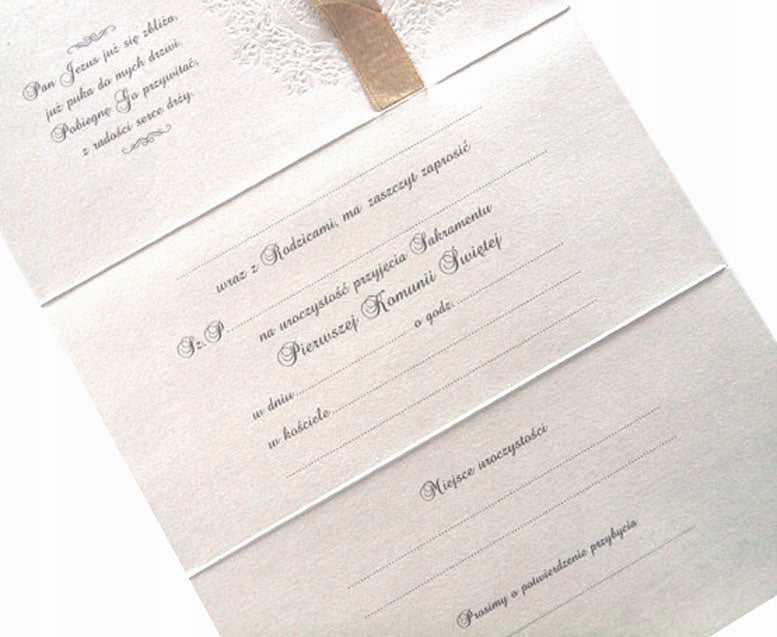 Pan Jezus już się zbliża,
już puka do mych drzwi.
Pobiegnę Go przywitać,
z radości serce drży.
wraz z Rodzicami, ma zaszczyt zaprosić
Sz.P.
na uroczystość przyjęcia Sakramentu
Pierwszej Komunii Świętej
w dniu o godz.
w kościele
Miejsce uroczystości
Prosimy o potwierdzenie przybycia